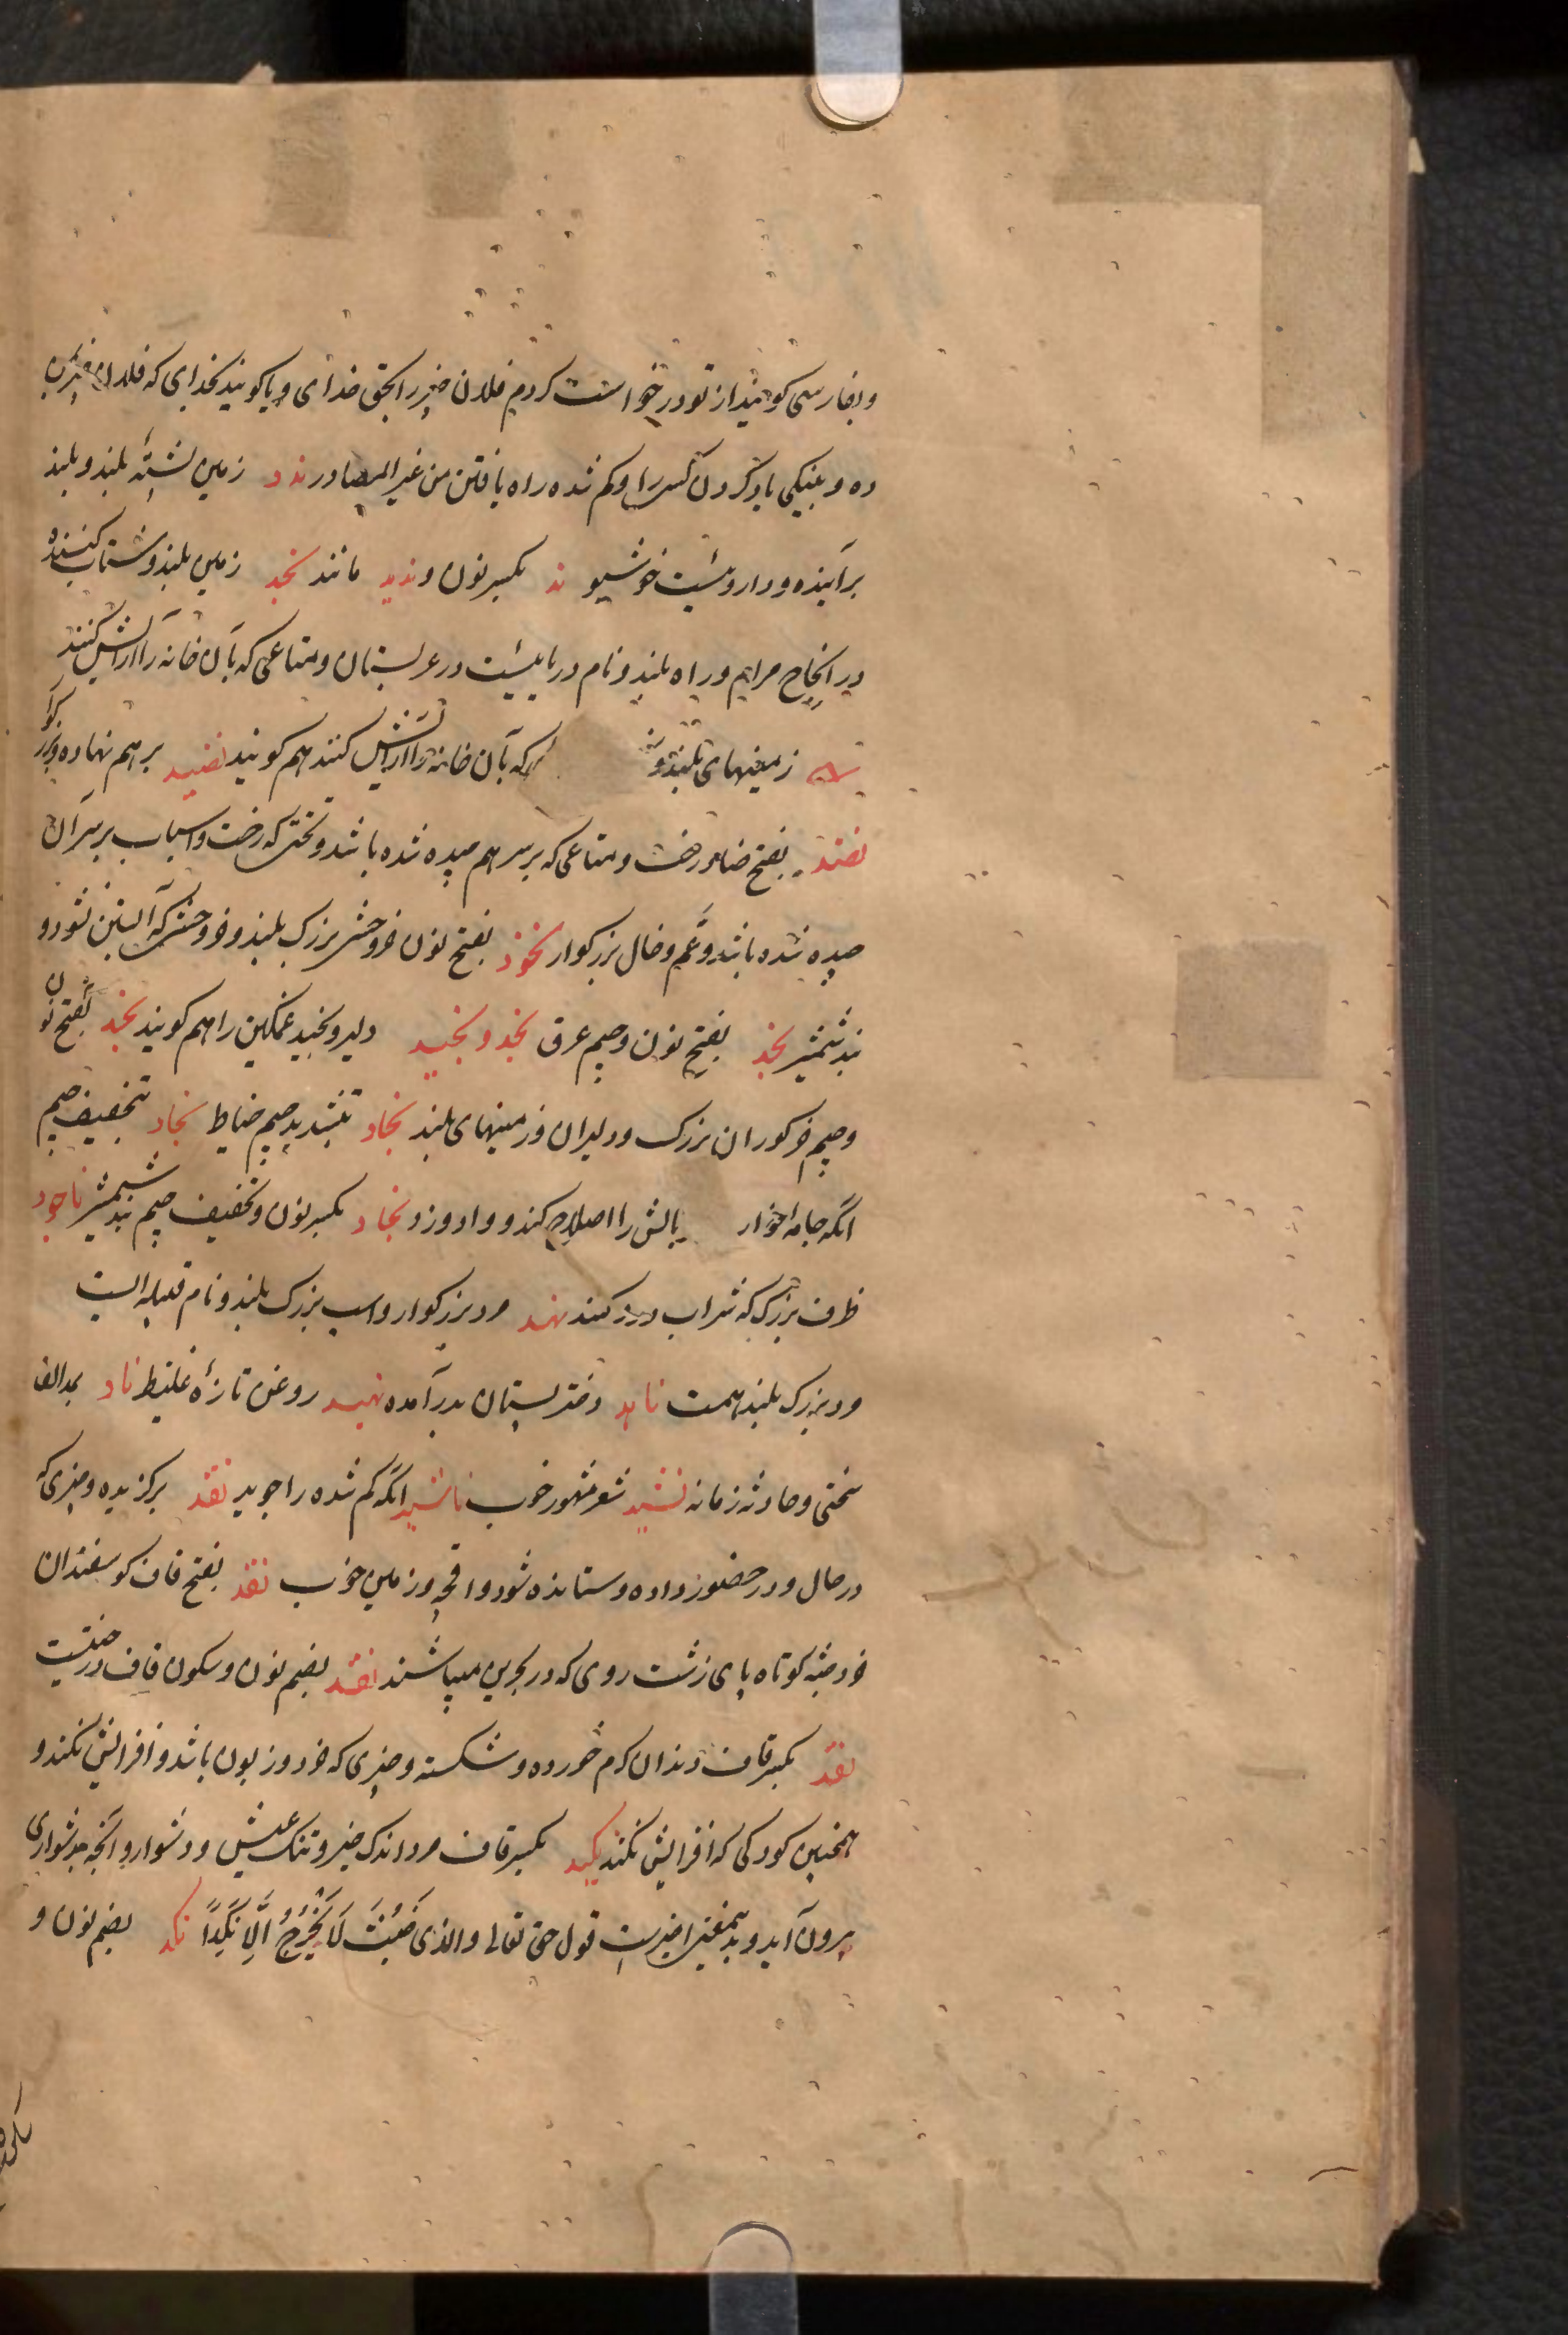 وبفارسی کویند از تو درخواست کردم فلان چیز را بحق خدای و یا کویند بخدای که فلان چیز بمن
ده و بنیکی یاد کردن کسی را و کم شده راه یافتن من غیر المصادر ند د زمین پشتهٔ بلند و بلند
برآینده و داروئیست خوشبو ند بکسر نون و ندید مانند نجد زمین بلند و شتاب کننده
در انجاح مرام و راه بلند و نام دریائیست در عربستان و متاعی که بآن خانه را آرایش کنند
زمینهای بلند و که بآن خانه را آرایش کنند هم کویند نضید بر هم نهاده
نضد بفتح ضاد رخت و متاعی که بر سر هم چیده شده باشد و تختی که رخت و اسباب بر سر آن
چیده شده باشد و عم و خال بزرکوار نخود بفتح نون خر وحشی بزرک بلند و خر وحشی که آبستن نشود و
بند شمشیر نجد بفتح نون و جیم عرق نجد و نجید دلیر و نجید غمکین را هم کویند نجد بفتح نون
و جیم خرکوران بزرک و دلیران و زمینهای بلند نجاد بتشدید جیم خیاط نجاد بتخفیف جیم
انکه جامه بالش را اصلاح کند و وادوزد نجاد بکسر نون و تخفیف جیم بند شمشیر ناجود
ظرف بزرک که شراب درو کنند نهد مرد بزرکوار و اسب بزرک بلند و نام قبیله ایست
مرد بزرک بلند همت ناهد دختر پستان بدر آمده نهید روغن تازهٔ غلیظ ناد بمد الف
سختی و حادثه زمانه نشید شعر مشهور خوب ناشید انکه کم شده را جوید نقد برکزیده و چیزی که
در حال و در حضور داده و ستانده شود و اقچه و زمین خوب نقد بفتح قاف کوسفندان
خرد جثه کوتاه پای زشت روی که در بحرین میباشند نقد بضم نون و سکون قاف درختیست
نقد بکسر قاف دندان کرم خورده و شکسته و چیزی که خرد و زبون باشد و افزایش نکند و
همچنین کودکی که افزایش نکند نکید بکسر قاف مرد اندک خیر و تنک عیش و دشوار و آنچه بدشواری
بیرون آید و بدینمعنی اخیرست قول حق تعالی والذی خَبُثَ لَا یَخْرُجُ اِلَّا نَکِداً نکد بضم نون و